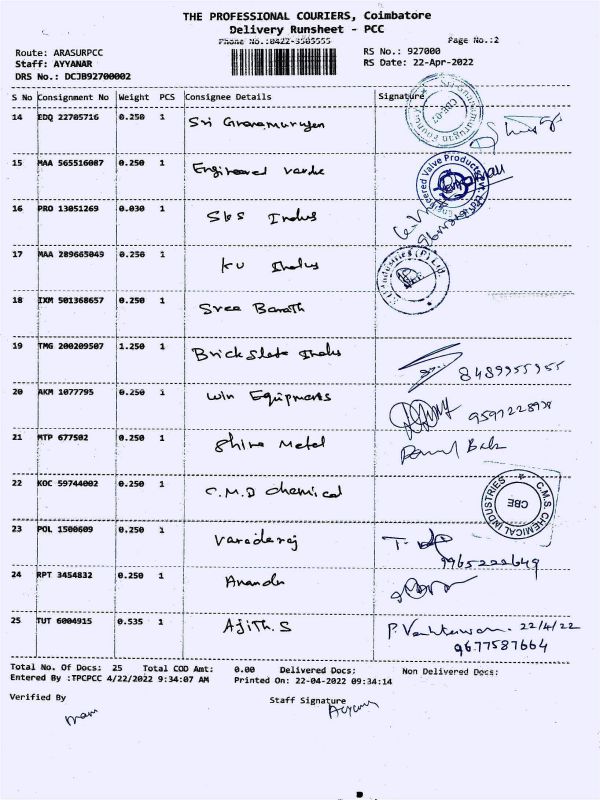 THE PROFESSIONAL COURIERS, Coimbatore
Delivery Runsheet - PCC
Phone No.:0422-3505555
Page No.:2
Route: ARASURPCC
RS No.: 927000
Staff: AYYANAR
RS Date: 22-Apr-2022
DRS No.: DCJB92700002
S No Consignment No Weight PCS Consignee Details Signature
14 EDQ 22705716 0.250 1 Sri Gnanamurugan
15 MAA 565516087 0.250 1 Engineered Valve
16 PRO 13051269 0.030 1 SBS Indus
17 MAA 289665049 0.250 1 KU Indus
18 IXM 501368657 0.250 1 Sree Barath
19 TMG 200209507 1.250 1 Brick Slate Indus 8489955955
20 AKM 1077795 0.250 1 Win Equipments
21 MTP 677502 0.250 1 Shine Metal
22 KOC 59744002 0.250 1 C.M.D chemical
C.M.S CHEMICAL INDUSTRIES
CBE
23 POL 1500609 0.250 1 Varadaraj
9965222649
24 RPT 3454832 0.250 1
25 TUT 6004915 0.535 1 Ajith.S 22/4/22
9677587664
Total No. Of Docs: 25 Total COD Amt: 0.00 Delivered Docs: Non Delivered Docs:
Entered By :TPCPCC 4/22/2022 9:34:07 AM Printed On: 22-04-2022 09:34:14
Verified By Staff Signature